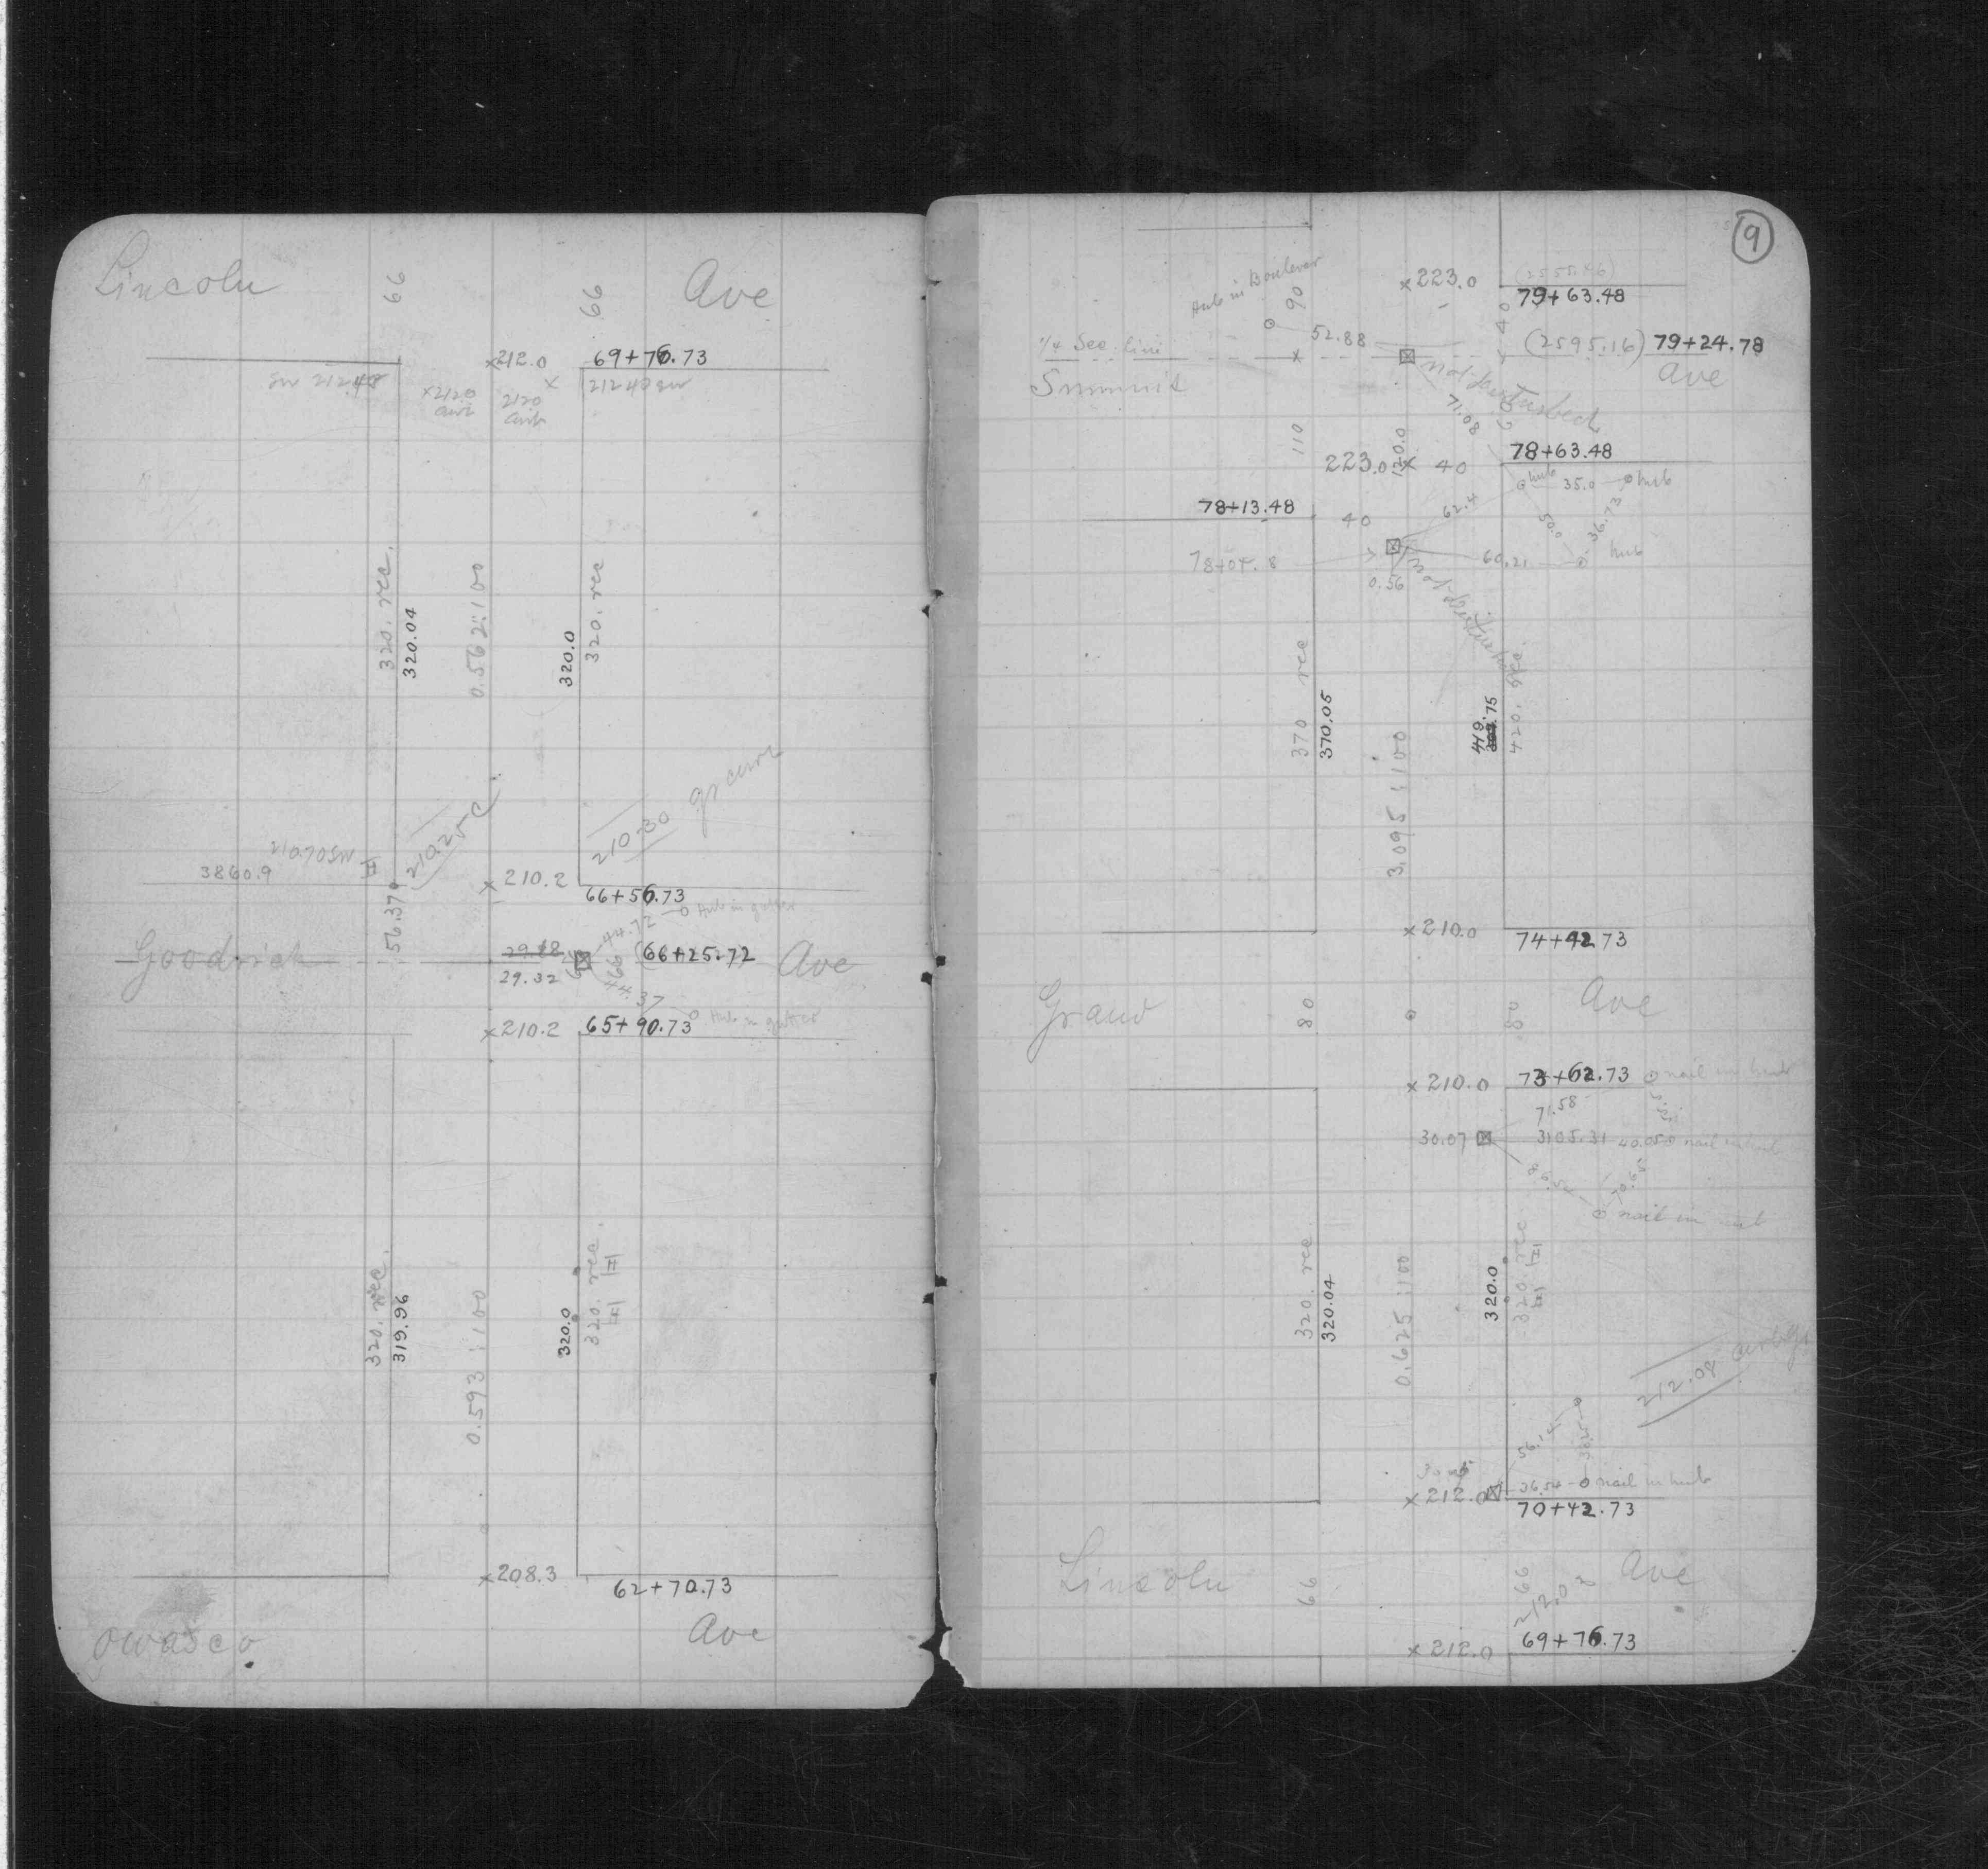 Lincoln 66 66 Ave
×212.0 69+76.73
SW 212.40 ×212.0 curb 212.0 curb × 212.40 SW
320. rec.
320.04
0.562:100
320.0
320. rec
210.25 C
210.30 gr curb
210.70 SW
3860.9
×210.2 66+56.73
56.37
44.72 Hub in gutter
Goodrich 29.32 (66+25.72) Ave
44.37 Hub in gutter
×210.2 65+90.73
320. rec.
319.96
0.593:100
320.0
320. rec.
×208.3 62+70.73
Owasco Ave
9
Hub in Boulevar
90
×223.0 79+63.48
40
1/4 Sec. line 52.88 (2595.16) 79+24.78
Summit Ave
not disturbed
71.08
60
110
120.0
223.0 × 40 78+63.48
hub 35.0 hub
78+13.48 40
62.4
50.0
36.73
0.56
60.21 hub
370 rec
370.05
3.095:100
419.75
420. rec.
×210.0 74+42.73
Grand 80 80 Ave
×210.0 73+62.73 nail in hub
71.58
30.07 3105.31 40.05 nail in hub
70.65
nail in hub
320. rec
320.04
0.625:100
320.0
320 rec
212.08 curb gr
56.14
×212.0 36.54 nail in hub
70+42.73
Lincoln 66 66 Ave
212.0
×212.0 69+76.73